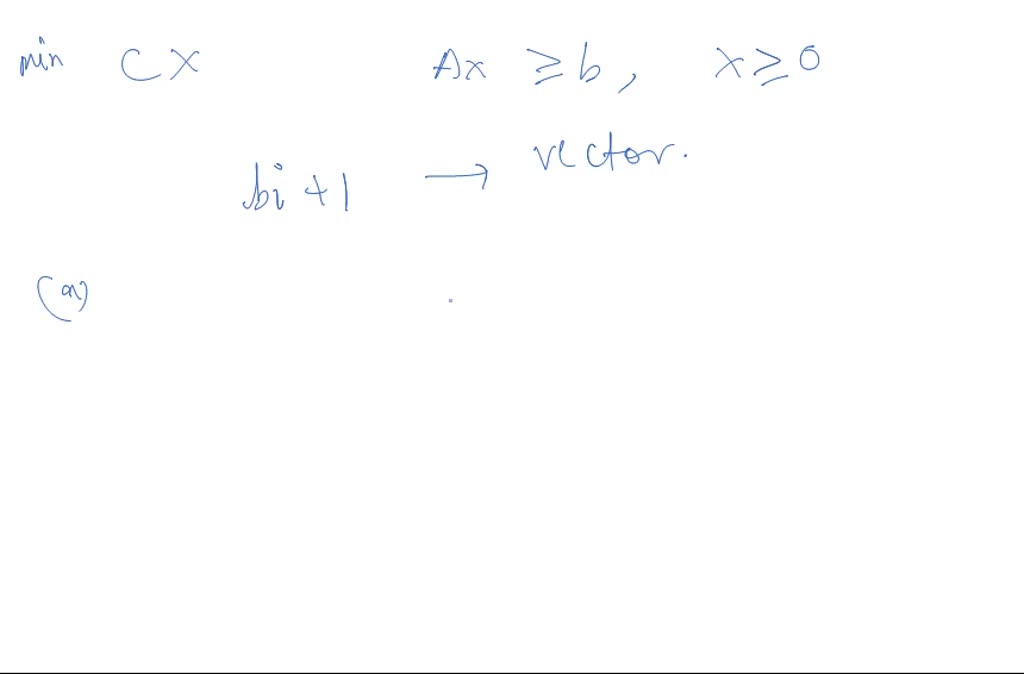 min CX Ax ≥ b, x ≥ 0
bi + 1 → vector.
(a)